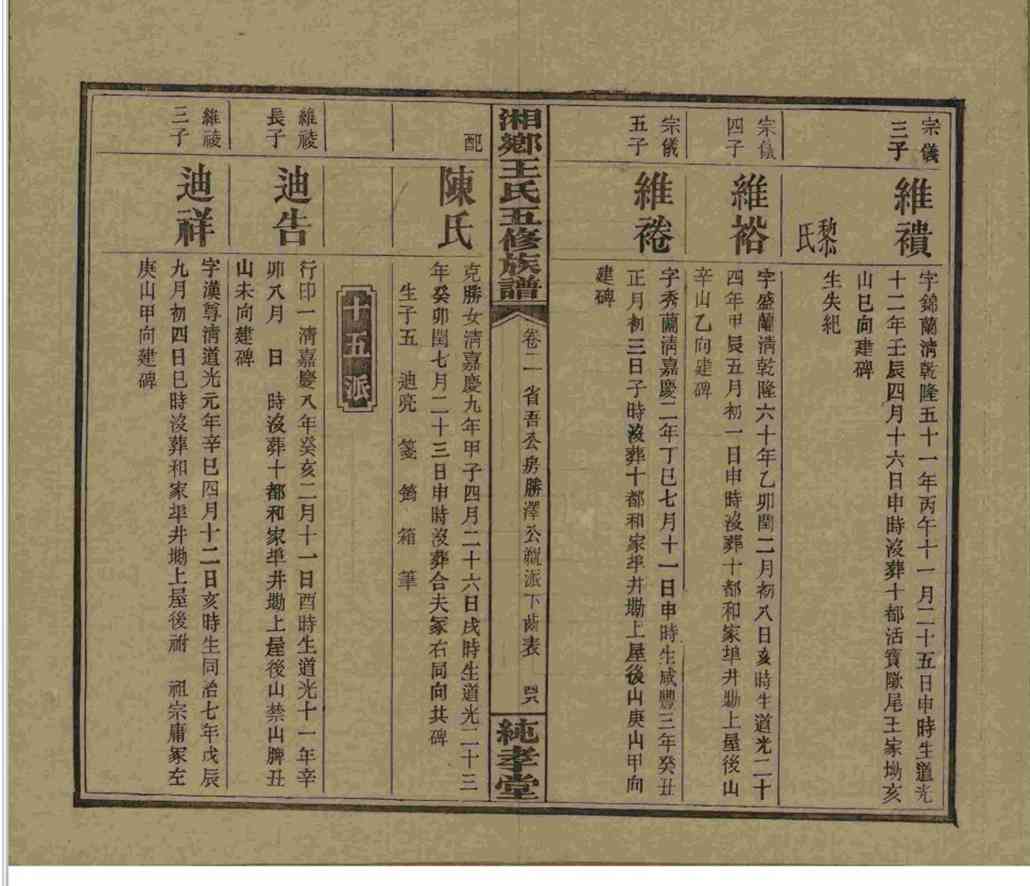 宗儀
三子
維禶
字錦蘭清乾隆五十一年丙午十一月二十五日申時生道光
十二年壬辰四月十六日申時沒葬十都活寶陂尾王家坳亥
山巳向建碑
黎氏
生失紀
宗儀
四子
維裕
字盛蘭清乾隆六十年乙卯閏二月初八日亥時生道光二十
四年甲辰五月初一日申時沒葬十都和家埠井坳上屋後山
辛山乙向建碑
宗儀
五子
維裷
字秀蘭清嘉慶二年丁巳七月十一日申時生咸豐三年癸丑
正月初三日子時沒葬十都和家埠井坳上屋後山庚山甲向
建碑
湘鄉王氏五修族譜
卷二 省吾公房勝澤公親派下齒表 四八
純孝堂
配
陳氏
克勝女清嘉慶九年甲子四月二十六日戌時生道光二十三
年癸卯閏七月二十三日申時沒葬合夫冢右同向共碑
生子五 迪亮 箋 篛 箱 筆
十五派
維祾
長子
迪告
行印一清嘉慶八年癸亥二月十一日酉時生道光十一年辛
卯八月 日 時沒葬十都和家埠井坳上屋後山禁山脾丑
山未向建碑
維祾
三子
迪祥
字漢尊清道光元年辛巳四月十二日亥時生同治七年戊辰
九月初四日巳時沒葬和家埠井坳上屋後祔 祖宗庸冢左
庚山甲向建碑